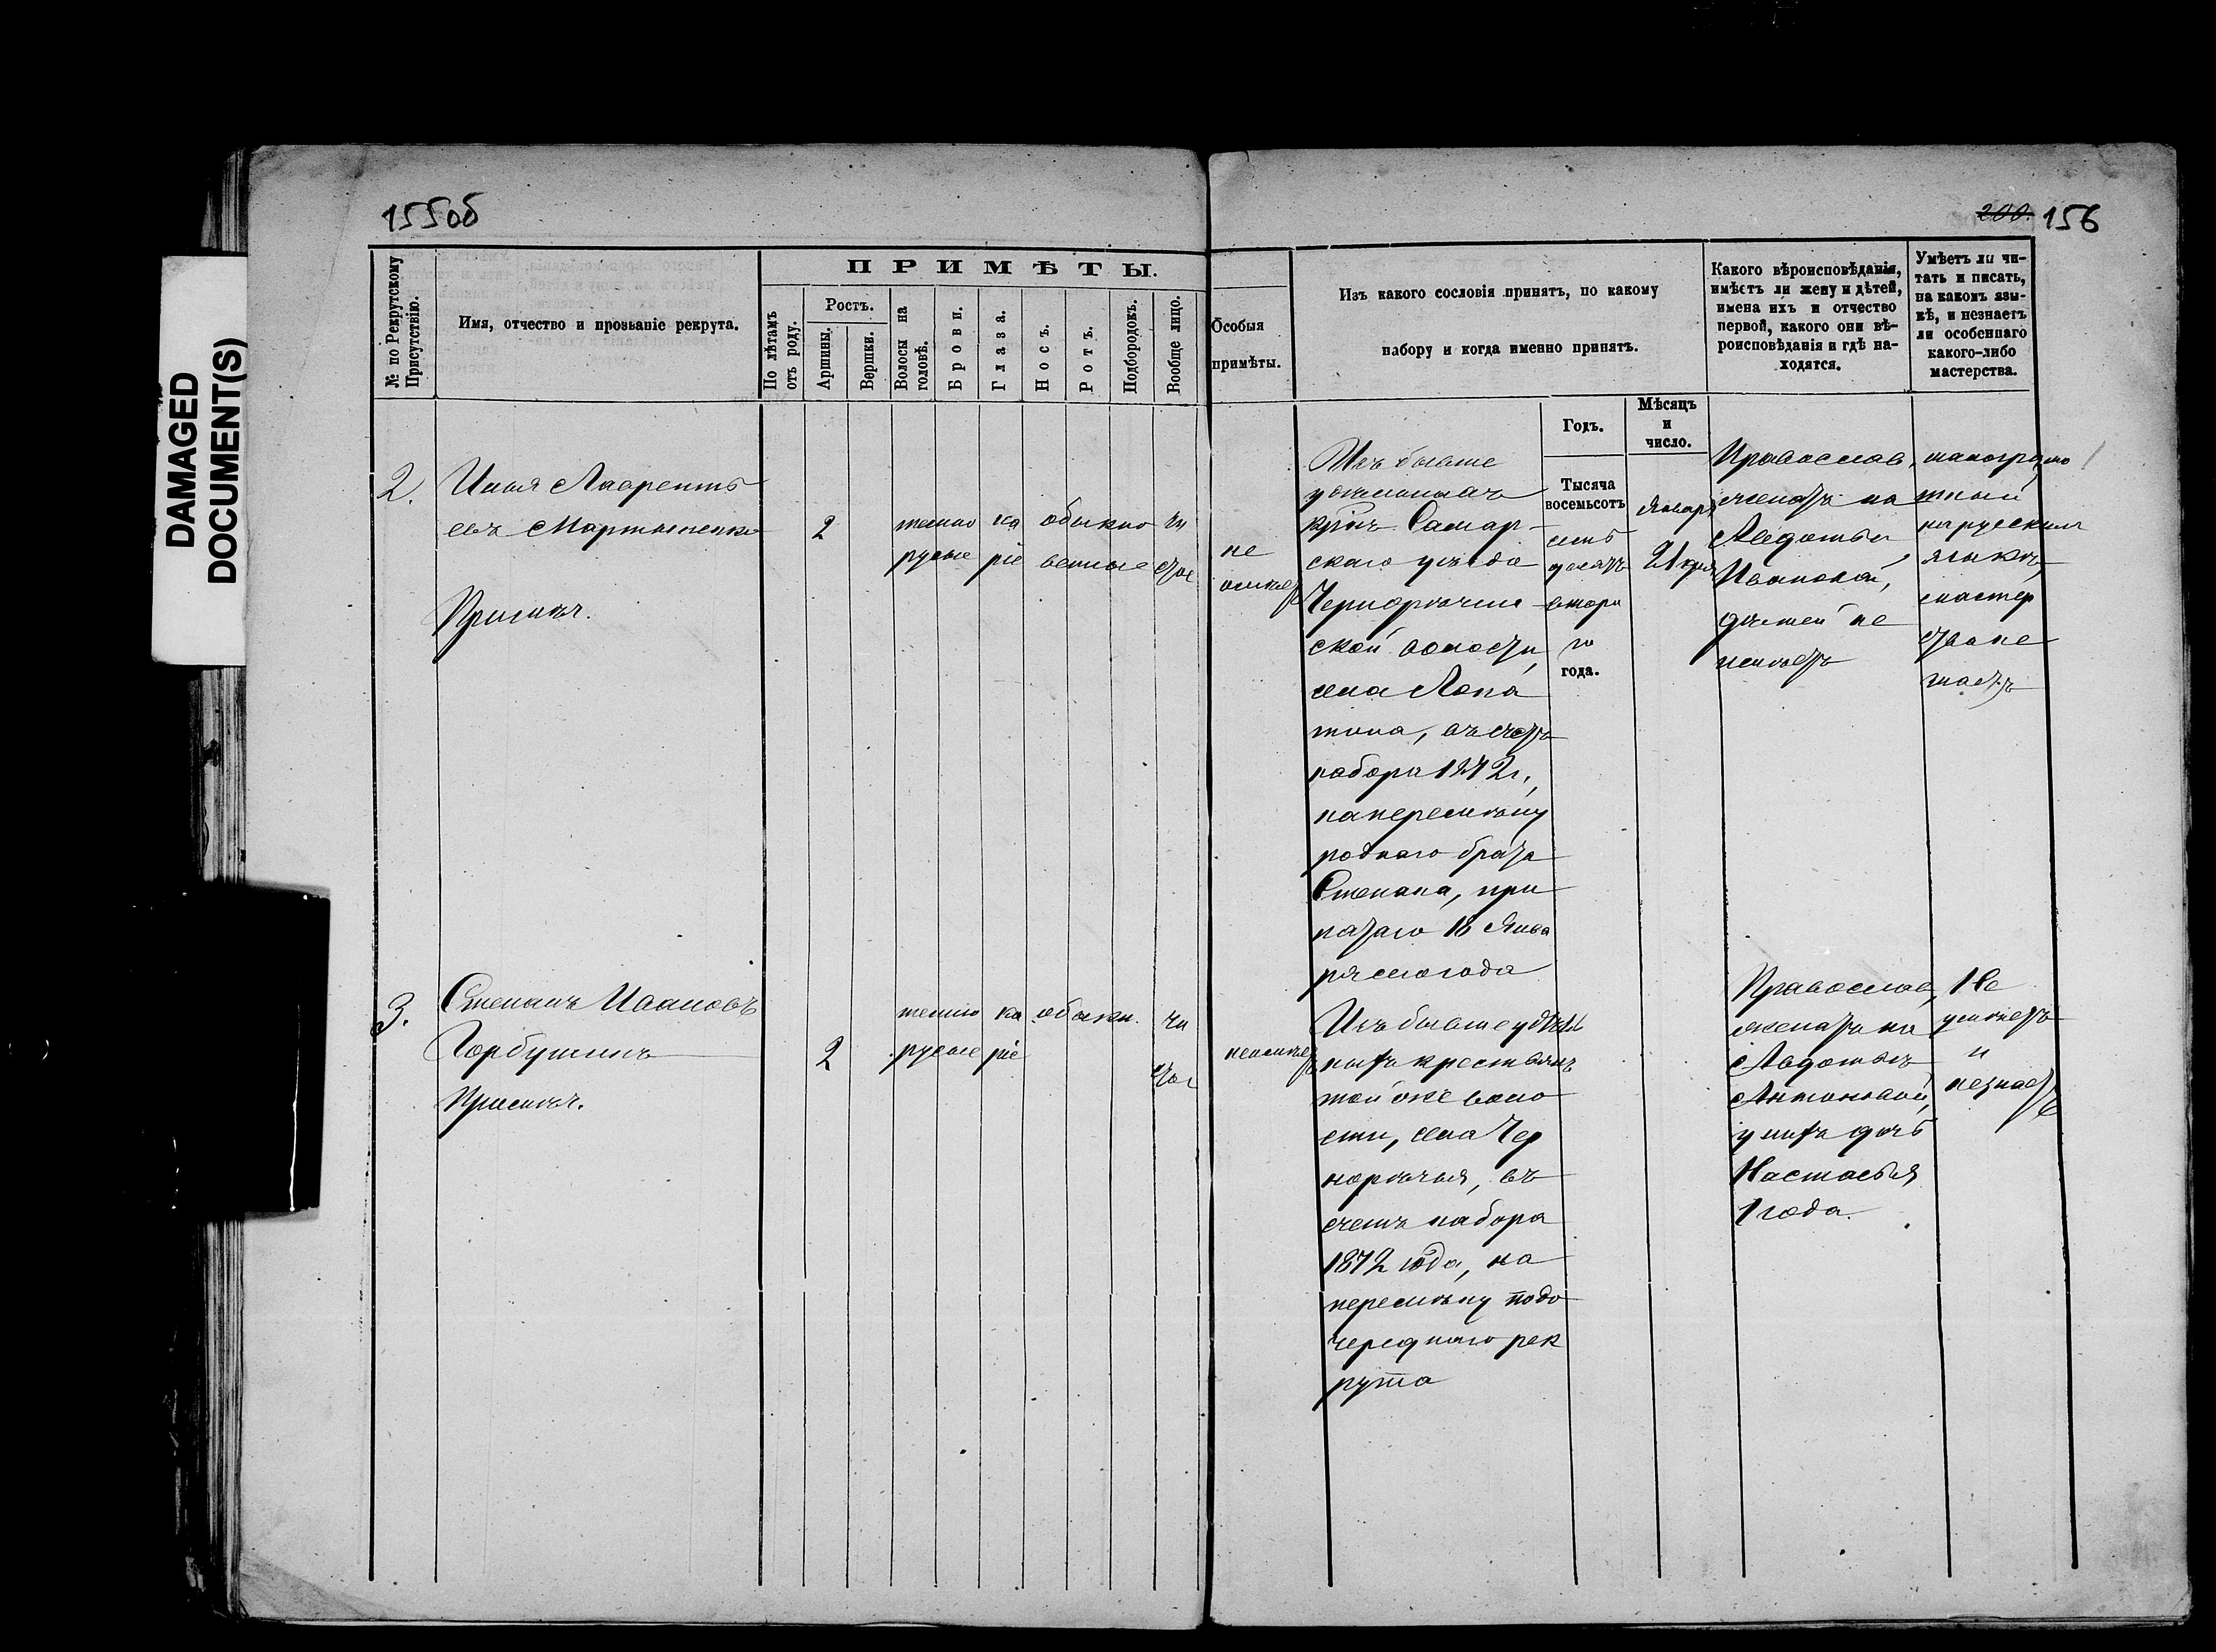 DAMAGED
DOCUMENT(S)
155об
200. 156
№ по Рекрутскому Присутствію.
Имя, отчество и прозьаніе рекрута.
ПРИМѢТЫ.
По лѣтамъ отъ роду.
Ростъ.
Аршины.
Вершки.
Волосы на головѣ.
Брови.
Глаза.
Носъ.
Ротъ.
Подбородокъ.
Вообще лицо.
Особыя
примѣты.
Изъ какого сословія принятъ, по какому
набору и когда именно принятъ.
Какого вѣроисповѣданія,
имѣетъ ли жену и дѣтей,
имена ихъ и отчество
первой, какого они вѣ-
роисповѣданія и гдѣ на-
ходятся.
Умѣетъ ли чи-
тать и писать,
на какомъ язы-
кѣ, и незнаетъ
ли особеннаго
какого-либо
мастерства.
Годъ.
Мѣсяцъ
и
число.
2.
Илья Лаврентъ
евъ Мартыненко
Присикъ.
2
темно
русые
ка
ріе
обыкно
венные
чи
стое
не
имѣетъ
Изъ бывше
удѣльныхъ
крѣн. Самар-
скаго уѣзда
Чернорѣчен
ской волости,
села Лопа
тина, въ счетъ
набора 1872 г.,
на перемѣну
роднаго брата
Степана, при
нятаго 18 Янва
ря сего года
Тысяча
восемьсотъ
семь
десятъ
втора
го
года.
Января
21 дня
Православ,
женатъ на
Авдотьи
Ивановой,
дѣтей не
имѣетъ
малограмо
тный
на русскомъ
языкѣ,
мастер
ства не
знаетъ
3.
Степанъ Ивановъ
Горбушинъ
Присикъ.
2
темно
русые
ка
ріе
обыкн.
чи
стое
неимѣетъ
Изъ бывше удѣль
ныхъ крестьянъ
той же воло
сти, села Чер
норѣчья, въ
счетъ набора
1872 года, на
перемѣну подо
череднаго рек
рута
Православ,
женатъ на
Авдотьѣ
Антоновой,
у нихъ дочь
Настасья
1 года.
Не
умѣетъ
и
незнаетъ